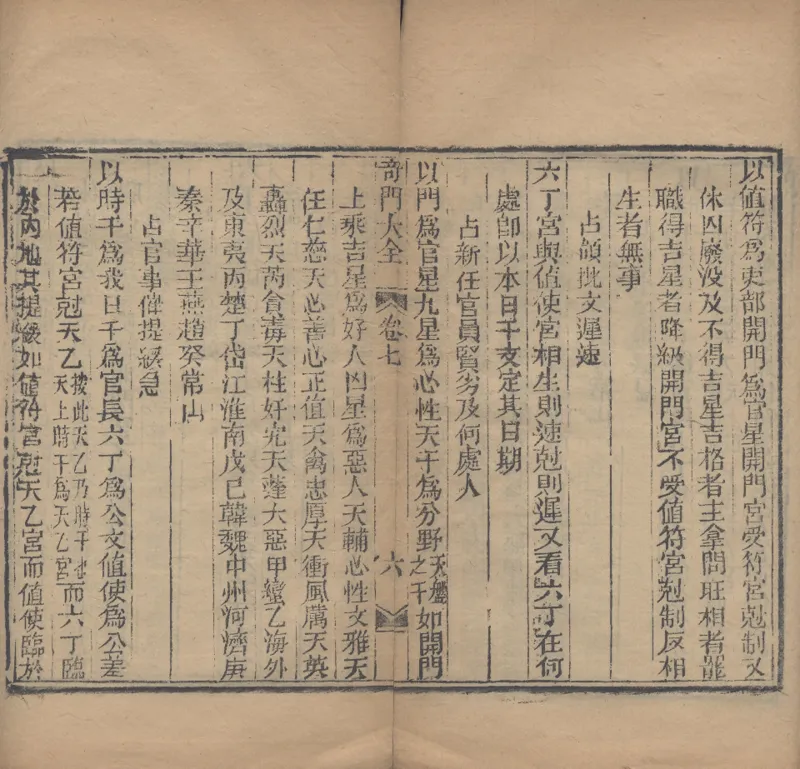 以値符爲吏部開門爲官星開門宮受符宮尅制又
休囚廢没及不得吉星吉格者主拿問旺相者罷
職得吉星者降級開門宮不受値符宮尅制反相
生者無事
占領批文遲速
六丁宮與値使宮相生則速尅則遲又看六丁在何
處即以本日干支定其日期
占新任官員賢劣及何處人
以門爲官星九星爲心性天干爲分野天盤之干如開門
奇門大全 卷七 六
上乘吉星爲好人凶星爲惡人天輔心性文雅天
任仁慈天心善心正值天禽忠厚天衝風厲天英
轟烈天芮貪毒天柱奸宄天蓬大惡甲蠻乙海外
及東夷丙楚丁岱江淮南戊己韓魏中州河濟庚
秦辛華壬燕趙癸常山
占官事催提緩急
以時干爲我日干爲官長六丁爲公文值使爲公差
若値符宮尅天乙按此天乙乃時干也天上時干爲天乙宮而六丁臨
於内地其提緩如值符宮尅天乙宮而值使臨於